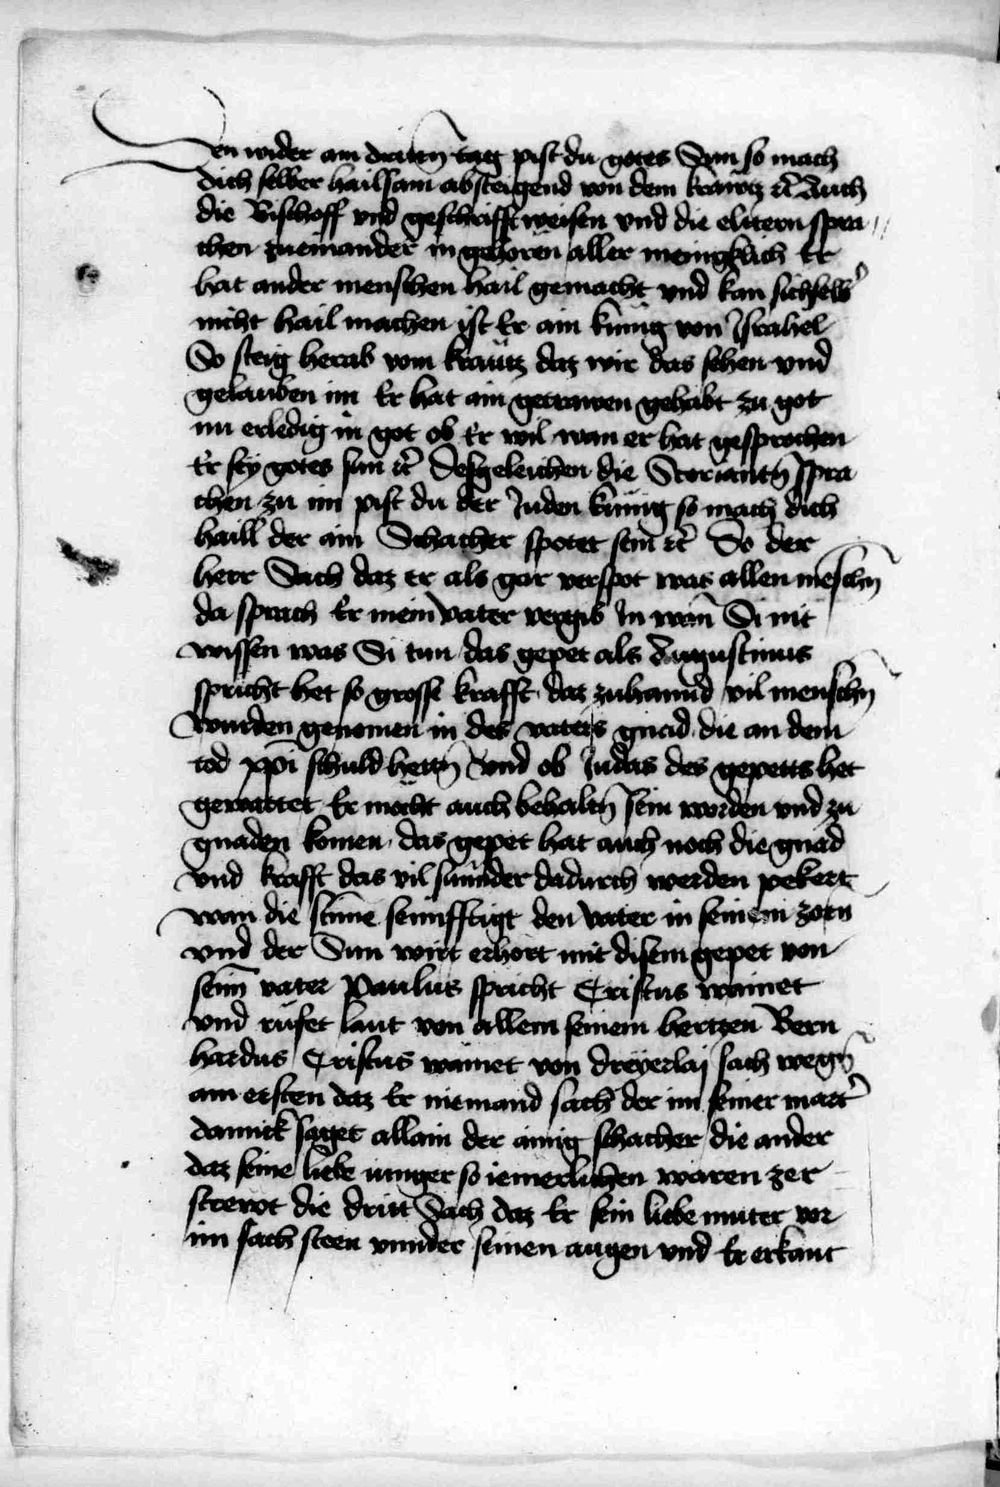 en wider am dritten tag pist du gotes Sun so mach
dich selber hailsam absteigend von dem krawtz etc̃ Auch
die Bischoff vnd geschrifft weisen vnd die elltern spra
chen zueinander in gehören aller menigklich Er
hat ander menschen hail gemacht vnd kan sich selb̾
nicht hail machen ist Er ain künig von Israhel
So steig herab vom kräutz daz wir das sehen vnd
gelauben im Er hat ain getrawen gehabt zu got
nu erledig in got ob Er wil wan er hat gesprochen
Er sey gotes sun etc̃ Desgeleichen die spra
chen zu im pist du der Juden künig so mach dich
haill der ain Schacher spotet sein etc̃ Do der
herr Sach daz er als gar verspot was allen mēschn̄
da sprach Er mein vater vergib In wan̄ Si nit
wissen was Si tun das gepet als Augustinus
spricht het so grosse krafft daz zuhannd vil menschn̄
wurden genomen in des vaters gnad die an dem
tod xp̄i schuld hettn̄ Vnd ob Judas des gepetts het
gewarttet Er möcht auch behaltn̄ sein worden vnd zu
gnaden komen das gepet hat auch noch die gnad
vnd krafft das vil sünnder dadurch werden pekert
wan die stime sennfftigt den vater in seinem zorn
vnd der Sun wirt erhört mit disem gepet von
sein̄ vater Paulus spricht Cristus wainet
vnd rüfet laut von allem seinem hertzen Bern
hardus Cristus wainet von dreyerlaj sach wegn̄
am ersten daz Er niemand sach der im seiner mart̾
dannck saget allain der ainig schacher die ander
daz seine liebe iunger so iemerlichen waren zer
strewt die dritt Sach daz Er sein liebe muter vor
im sach steen vnnder seinen augen vnd Er erkant